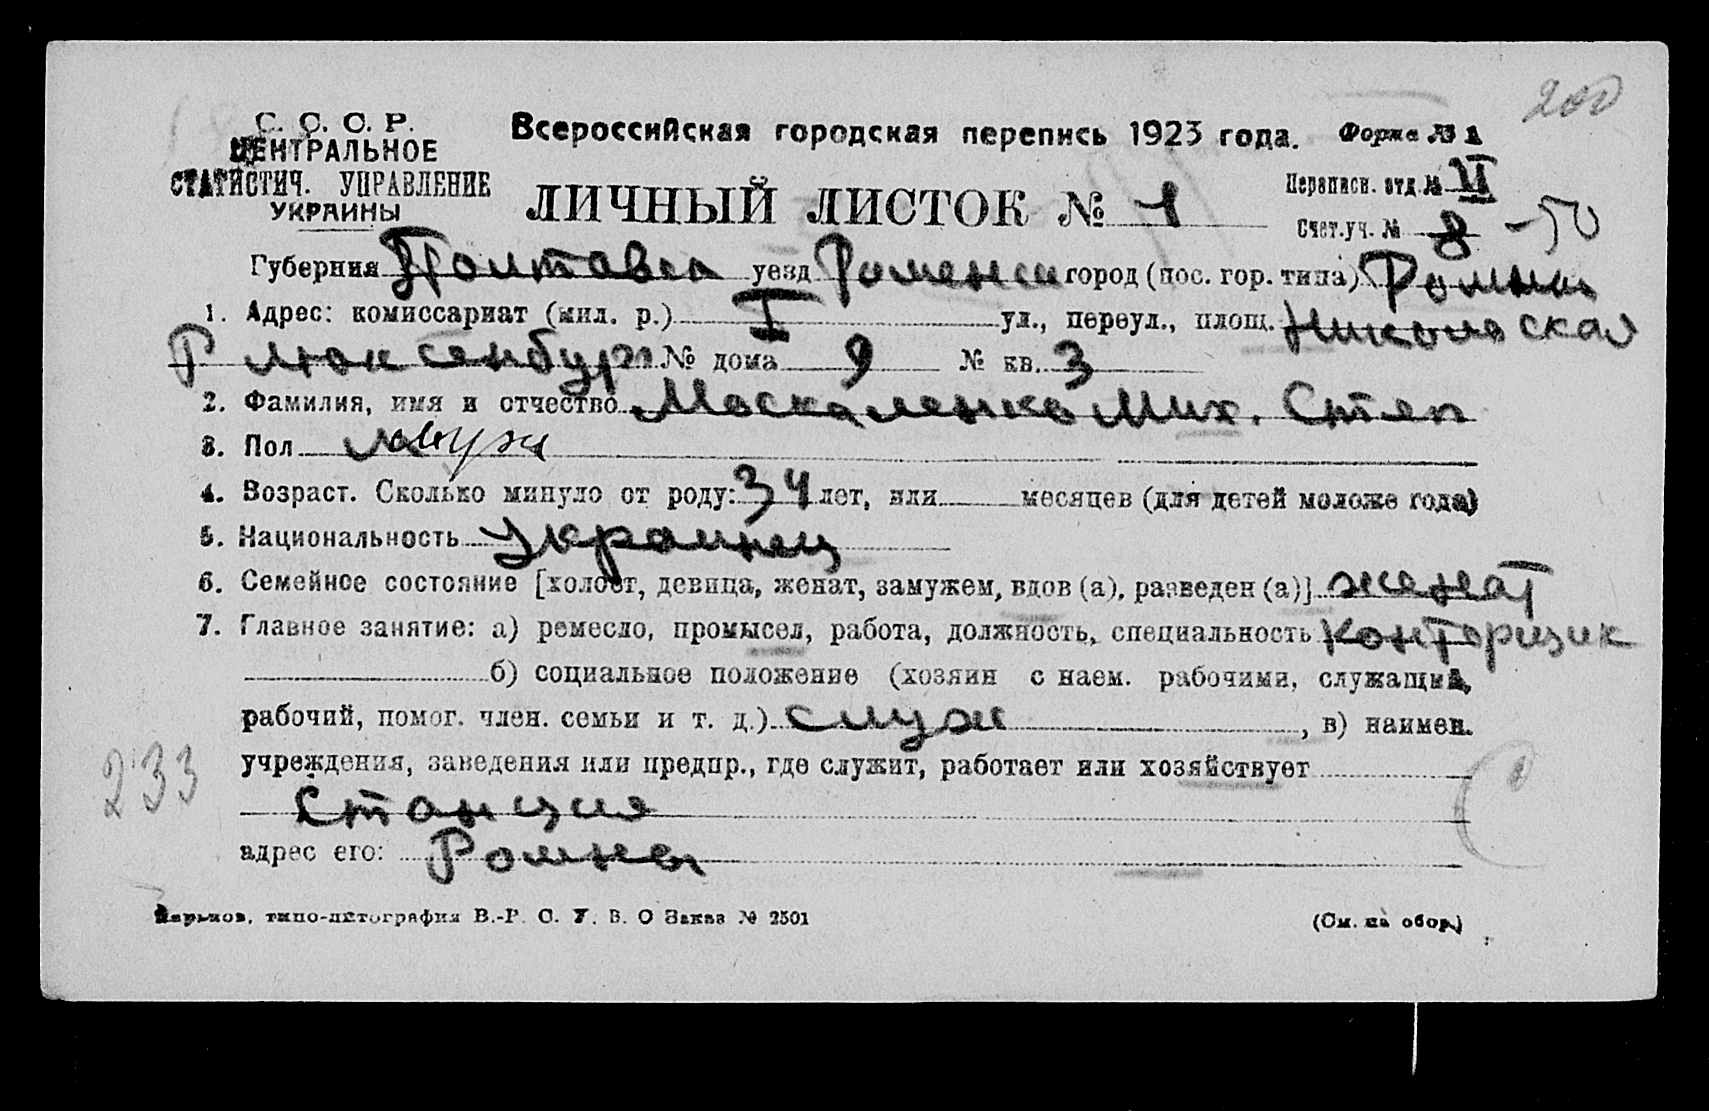 200
С. С. С. Р.
ЦЕНТРАЛЬНОЕ
СТАТИСТИЧ. УПРАВЛЕНИЕ
УКРАИНЫ
Всероссийская городская перепись 1923 года. Форма № 1
ЛИЧНЫЙ ЛИСТОК № 1
Переписн. отд. № VI
Счет. уч. № 8 -50
Губерния Полтавск уезд Роменск город (пос. гор. типа) Ромны
1. Адрес: комиссариат (мил. р.) I ул., переул., площ. Никольская
Р Люксенбург № дома 9 № кв. 3
2. Фамилия, имя и отчество Москаленко Мих. Степ
3. Пол муж
4. Возраст. Сколько минуло от роду: 34 лет, или месяцев (для детей моложе года)
5. Национальность Украинец
6. Семейное состояние [холост, девица, женат, замужем, вдов (а), разведен (а)] женат
7. Главное занятие: а) ремесло, промысел, работа, должность, специальность конторщик
б) социальное положение (хозяин с наем. рабочими, служащий,
рабочий, помог. член. семьи и т. д.) служ , в) наимен.
учреждения, заведения или предпр., где служит, работает или хозяйствует
Станция
233
адрес его: Ромны
Харьков, типо-литография В.-Р. С. У. В. О Заказ № 2501
(См. на обор.)